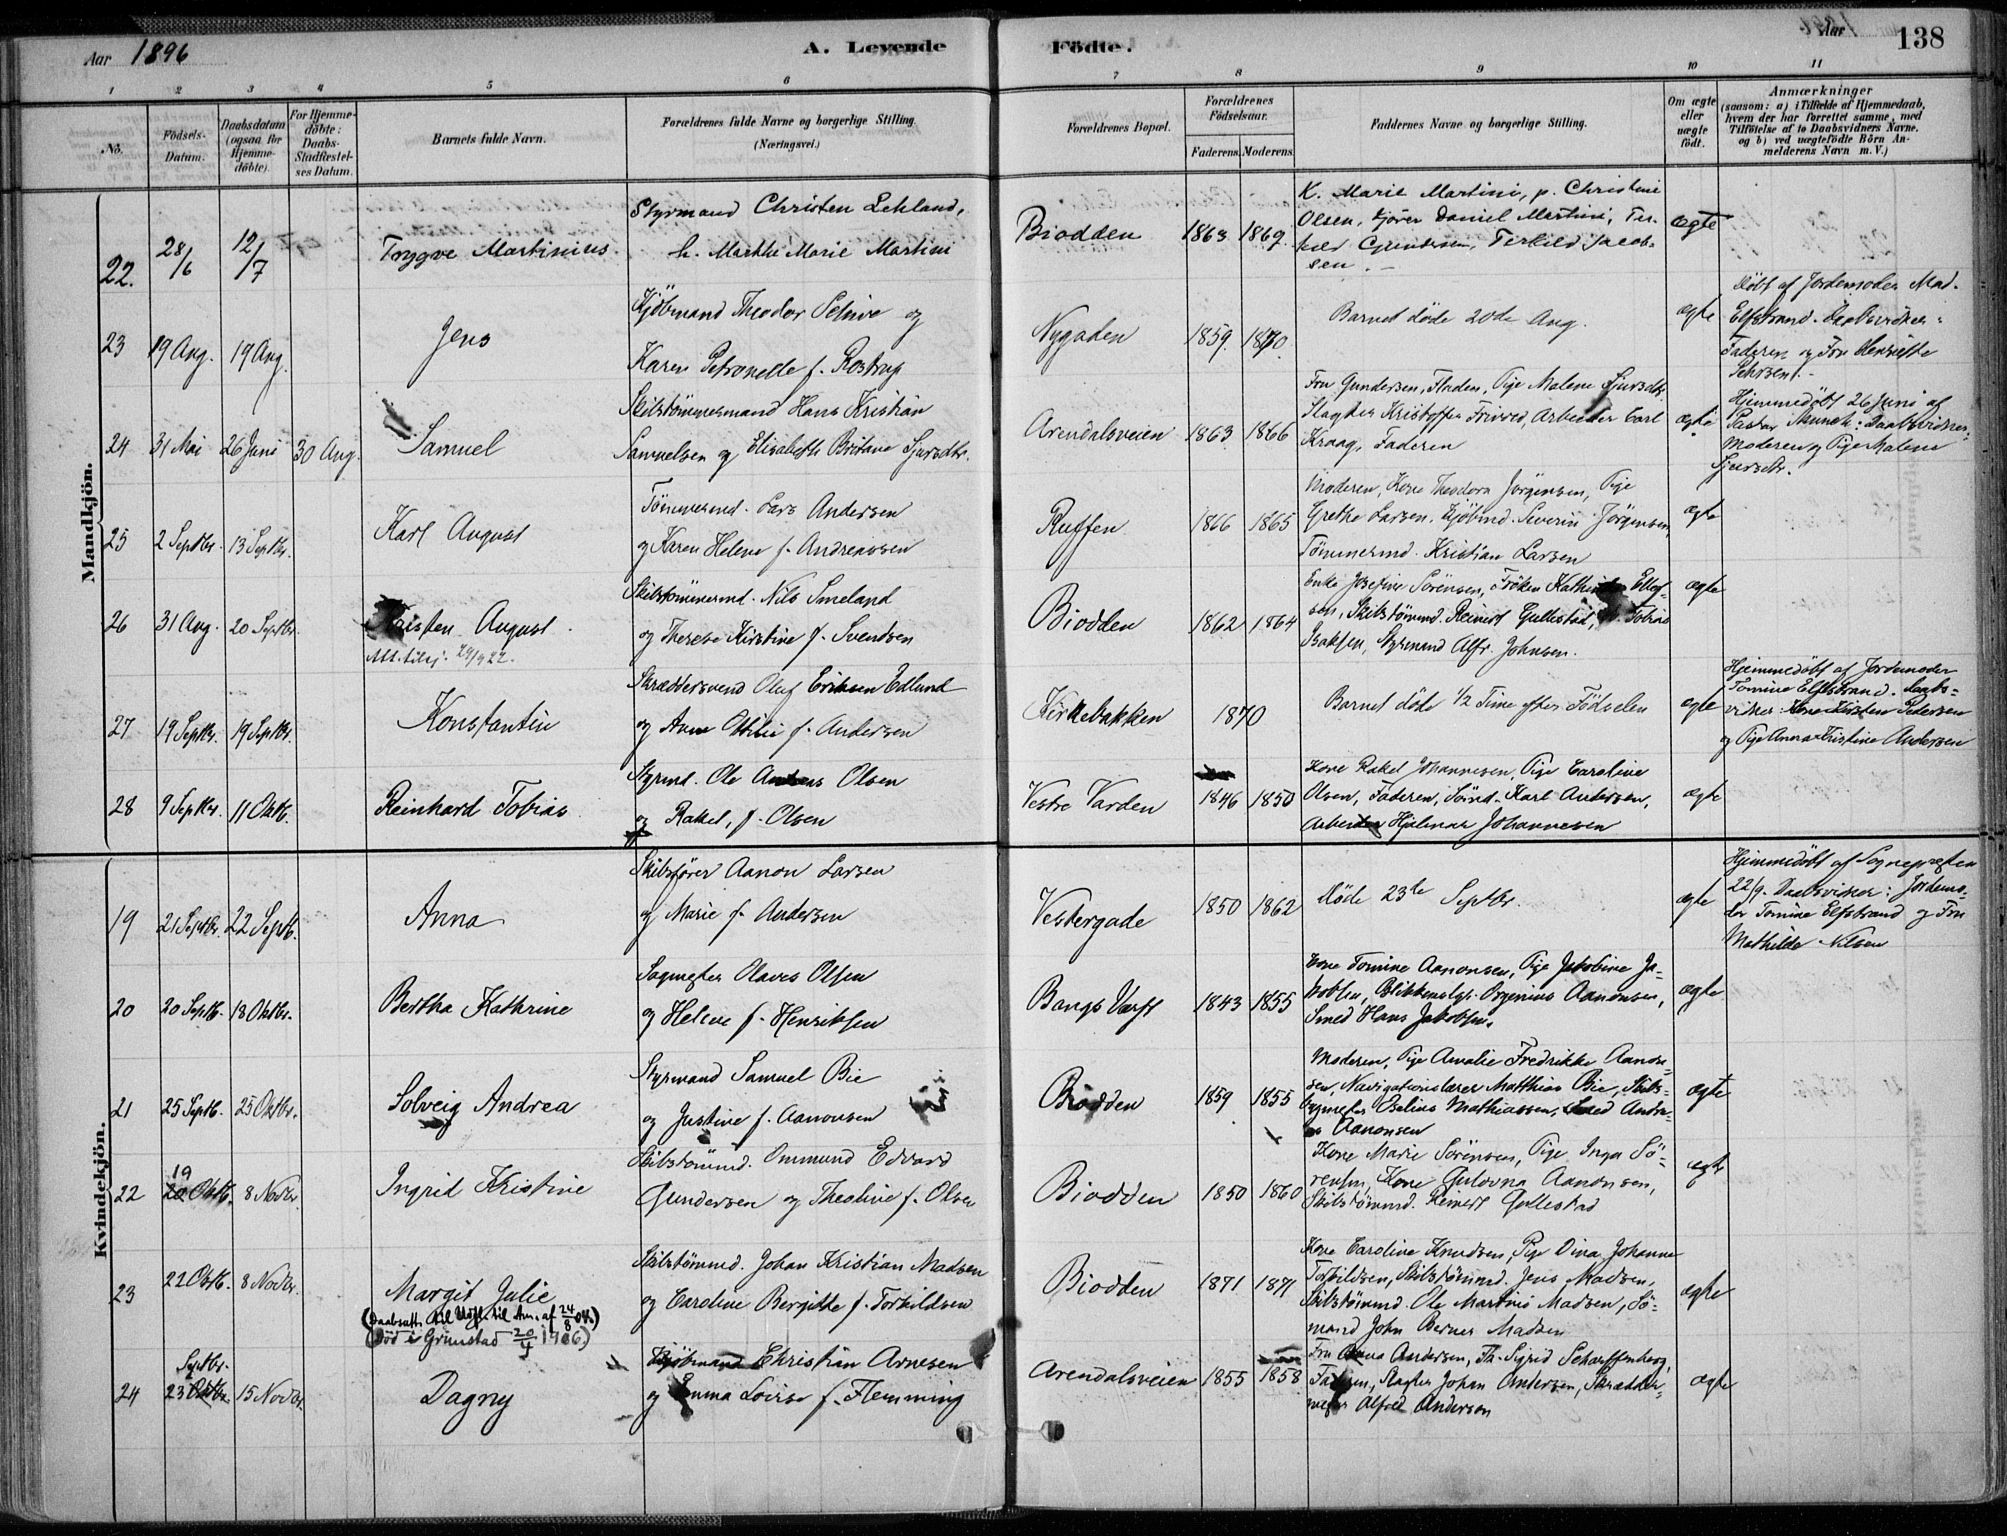 Aar 1896
A. Levende
Födte.
Aar 1896
138
1 2 3 4 5 6 7 8 9 10 11
No.
Födsels-
Datum.
Daabsdatum
(ogsaa for
Hjemme-
döbte)
For Hjemme-
döbte:
Daabs-
Stadfæstel-
ses Datum.
Barnets fulde Navn.
Forældrenes fulde Navne og borgerlige Stilling.
(Næringsvei.)
Forældrenes Bopæl.
Forældrenes
Födselsaar.
Faderens. Moderens.
Faddernes Navne og borgerlige Stilling.
Om ægte
eller
uægte
födt.
Anmærkninger
(saasom: a) i Tilfælde af Hjemmedaab,
hvem der har forrettet samme, med
Tilföielse af to Daabsvidners Navne,
og b) ved uægtefödte Börn An-
melderens Navn m. V.)
Mandkjön.
22. 28/6 12/7
Trygve Martinius
Styrmand Christen Lekland,
h. Marthe Marie Martini
Biodden 1863 1869.
K. Marie Martini, p. Christine
Olsen, Daniel Martini, Ter-
kild Gundersen, Terkild Jacob-
sen. -
ægte
23 19 Aug. 19 Aug.
Jens
Kjöbmand Theodor og
Karen Petronelle f. Rostrup
Nygaden 1859. 1870.
Barnet döde 20de Aug.
ægte
Döbt af Jordemoder Mad.
Elfstrand. Daabsvidner:
Faderen og Fru Henriette
24 31 Mai 26 Juni 30 Aug.
Samuel
Skibstömmermand Hans Kristian
Samuelsen og Elisabeth Britane Sjursdtr.
Arendalsveien 1863 1866
Fru Gundersen, Pige Malene Sjursdtr.
Slagter Kristoffer Arbeider Carl
Kraag, Faderen
ægte
Hjemmedöbt 26 Juni af
Pastor Munch: Daabsvidner
Moderen og Pige Malene
Sjursdtr.
25 2 Septbr. 13 Septbr.
Karl August
Tömmermd. Lars Andersen
og Karen Helene f. Andreassen
Ruffen 1866 1865
Moderen, Kone Theodora Jörgensen, Pige
Grethe Larsen, Kjöbmd. Severin Jörgensen,
Tömmermd. Kristian Larsen
ægte
26 31 Aug. 20 Septbr.
August
29/9 22.
Skibstömmermd. Nils Smeland
og Therese Kirstine f. Svendsen
Biodden 1862 1864
Enke Josefine Sörensen, Fröken
Skibstömmd. Reinert Gullestad, Tobias
Isaksen, Styrmand Alfr. Johnsen.
ægte
27 19 Septbr. 19 Septbr.
Konstantin
Skræddersvend Oluf Eriksen Edlund
og Anne Otilie f. Andersen
Kirkebakken 1870
Barnet döde 1/2 Time efter Födselen
ægte
Hjemmedöbt af Jordemoder
Tomine Elfstrand. Daabs-
vidner: Kone Kirsten Pedersen
og Pige Anna Kristine Andersen
28 9 Septbr. 11 Oktb.
Reinhard Tobias
Styrmd. Ole Olsen
og Rakel, f. Olsen
Vestre Varden 1846 1850
Kone Rakel Johannesen, Pige Caroline
Olsen, Faderen, Sömd. Karl Andersen,
Arbeider Hjalmar Johannesen
ægte
Kvindekjön.
19 21 Septbr. 22 Septb.
Anna
Skibsförer Aanon Larsen
og Marie f. Andersen
Vestergade 1850 1862
Döde 23de Septbr.
ægte
Hjemmedöbt af Sognepresten
22/9. Daabsvidner: Jordemo-
der Tomine Elfstrand og Fru
Mathilde Nilsen
20 20 Septb. 18 Oktbr.
Bertha Kathrine
Sagmester Olaves Olsen
og Helene f. Henriksen
Bangs Værft 1843 1855
Kone Tomine Aanonsen, Pige Jakobine Ja-
kobsen, Aanonsen,
Smed Hans Jakobsen.
ægte
21 25 Septb. 25 Oktbr.
Solveig Andrea
Styrmand Samuel Bie
og Justine f. Aanonsen
Biodden 1859 1855
Moderen, Pige Amalie Fredrikke Aanon-
sen, Navigationslærer Matthias Bie, Skibs-
bygmester Mathiassen,
Aanonsen
ægte
22 19 20 Oktb. 8 Novbr.
Ingrid Kristine
Skibstömmd. Ommund Edvard
Gundersen og Theoline f. Olsen
Biodden 1850 1860
Kone Marie Sörensen, Pige Inga Sö-
rensen, Kone Gulovna Aanonsen,
Skibstömmd. Reinert Gullestad
ægte
23 22 Oktb. 8 Novbr.
Margit Julie
(Daabsatt. til Udfl. til Am. af 24/8 04.)
(Död i Grimstad 20/4 1906)
Skibstömmd. Johan Kristian Madsen
og Caroline Bergitte f. Torkildsen
Biodden 1871 1871
Kone Caroline Knudsen, Pige Dina Johanne
Torkildsen, Skibstömmd. Jens Madsen,
Skibstömmd. Ole Martinis Madsen, Sö-
mand John Berner Madsen
ægte
24 Septbr. 23 Oktbr. 15 Novbr.
Dagny
Kjöbmand Christian Arnesen
og Emma Lovise f. Flemming
Arendalsveien 1855 1858
Fru Anna Andersen, Sigrid Scharffenberg,
Faderen, Slagter Johan Andersen, Skrædder-
mester Alfred Andersen
ægte